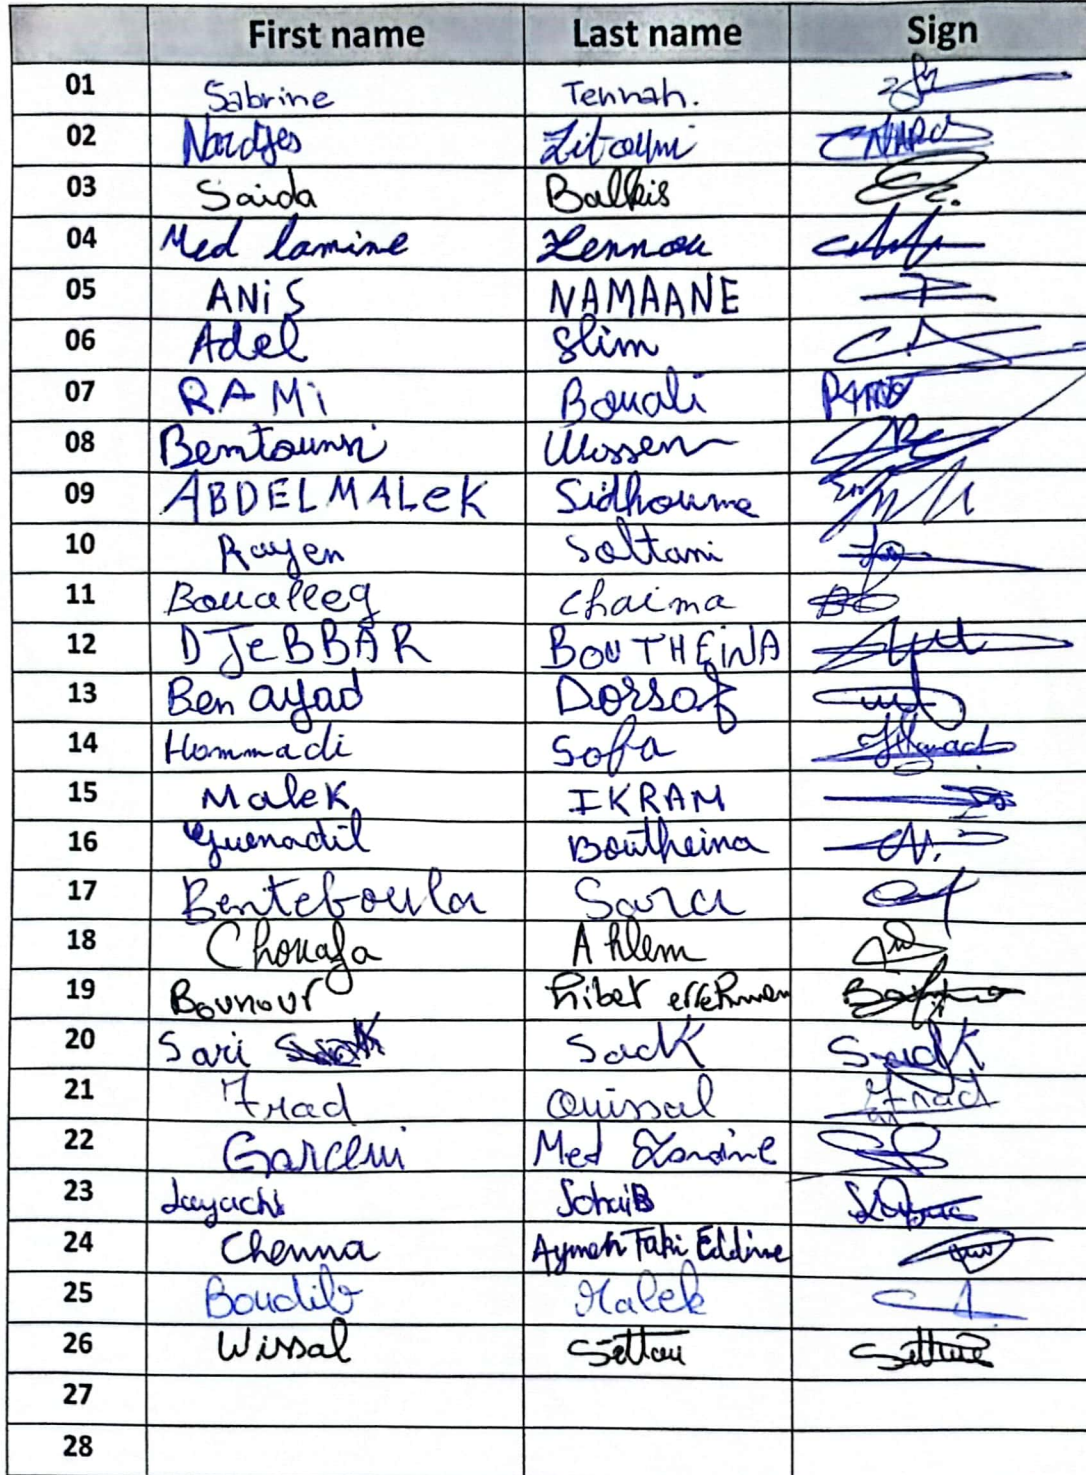 First name Last name Sign
01 Sabrine Tennah.
02 Nardjes Zitouni
03 Saida Balkis
04 Med lamine Zennou
05 ANiS NAMAANE
06 Adel Slim
07 RAMi Bouali
08 Bentounsi Wossen
09 ABDELMALeK Sidhoume
10 Rayen Soltani
11 Boualleg chaima
12 DJeBBAR BOUTHEINA
13 Ben ayad Dorsaf
14 Hammadi Safa
15 Malek IKRAM
16 Guenadil Boutheina
17 Benteboula Sara
18 Chouafa Ahlem
19 Bounour hibet errehmen
20 Sari Sadk Sadk
21 Frad Ouissal Frad
22 Med
23 Layachi SohaiB
24 Chenna Aymen Taki Eddine
25 Boudib Malek
26 Wissal Settou
27
28